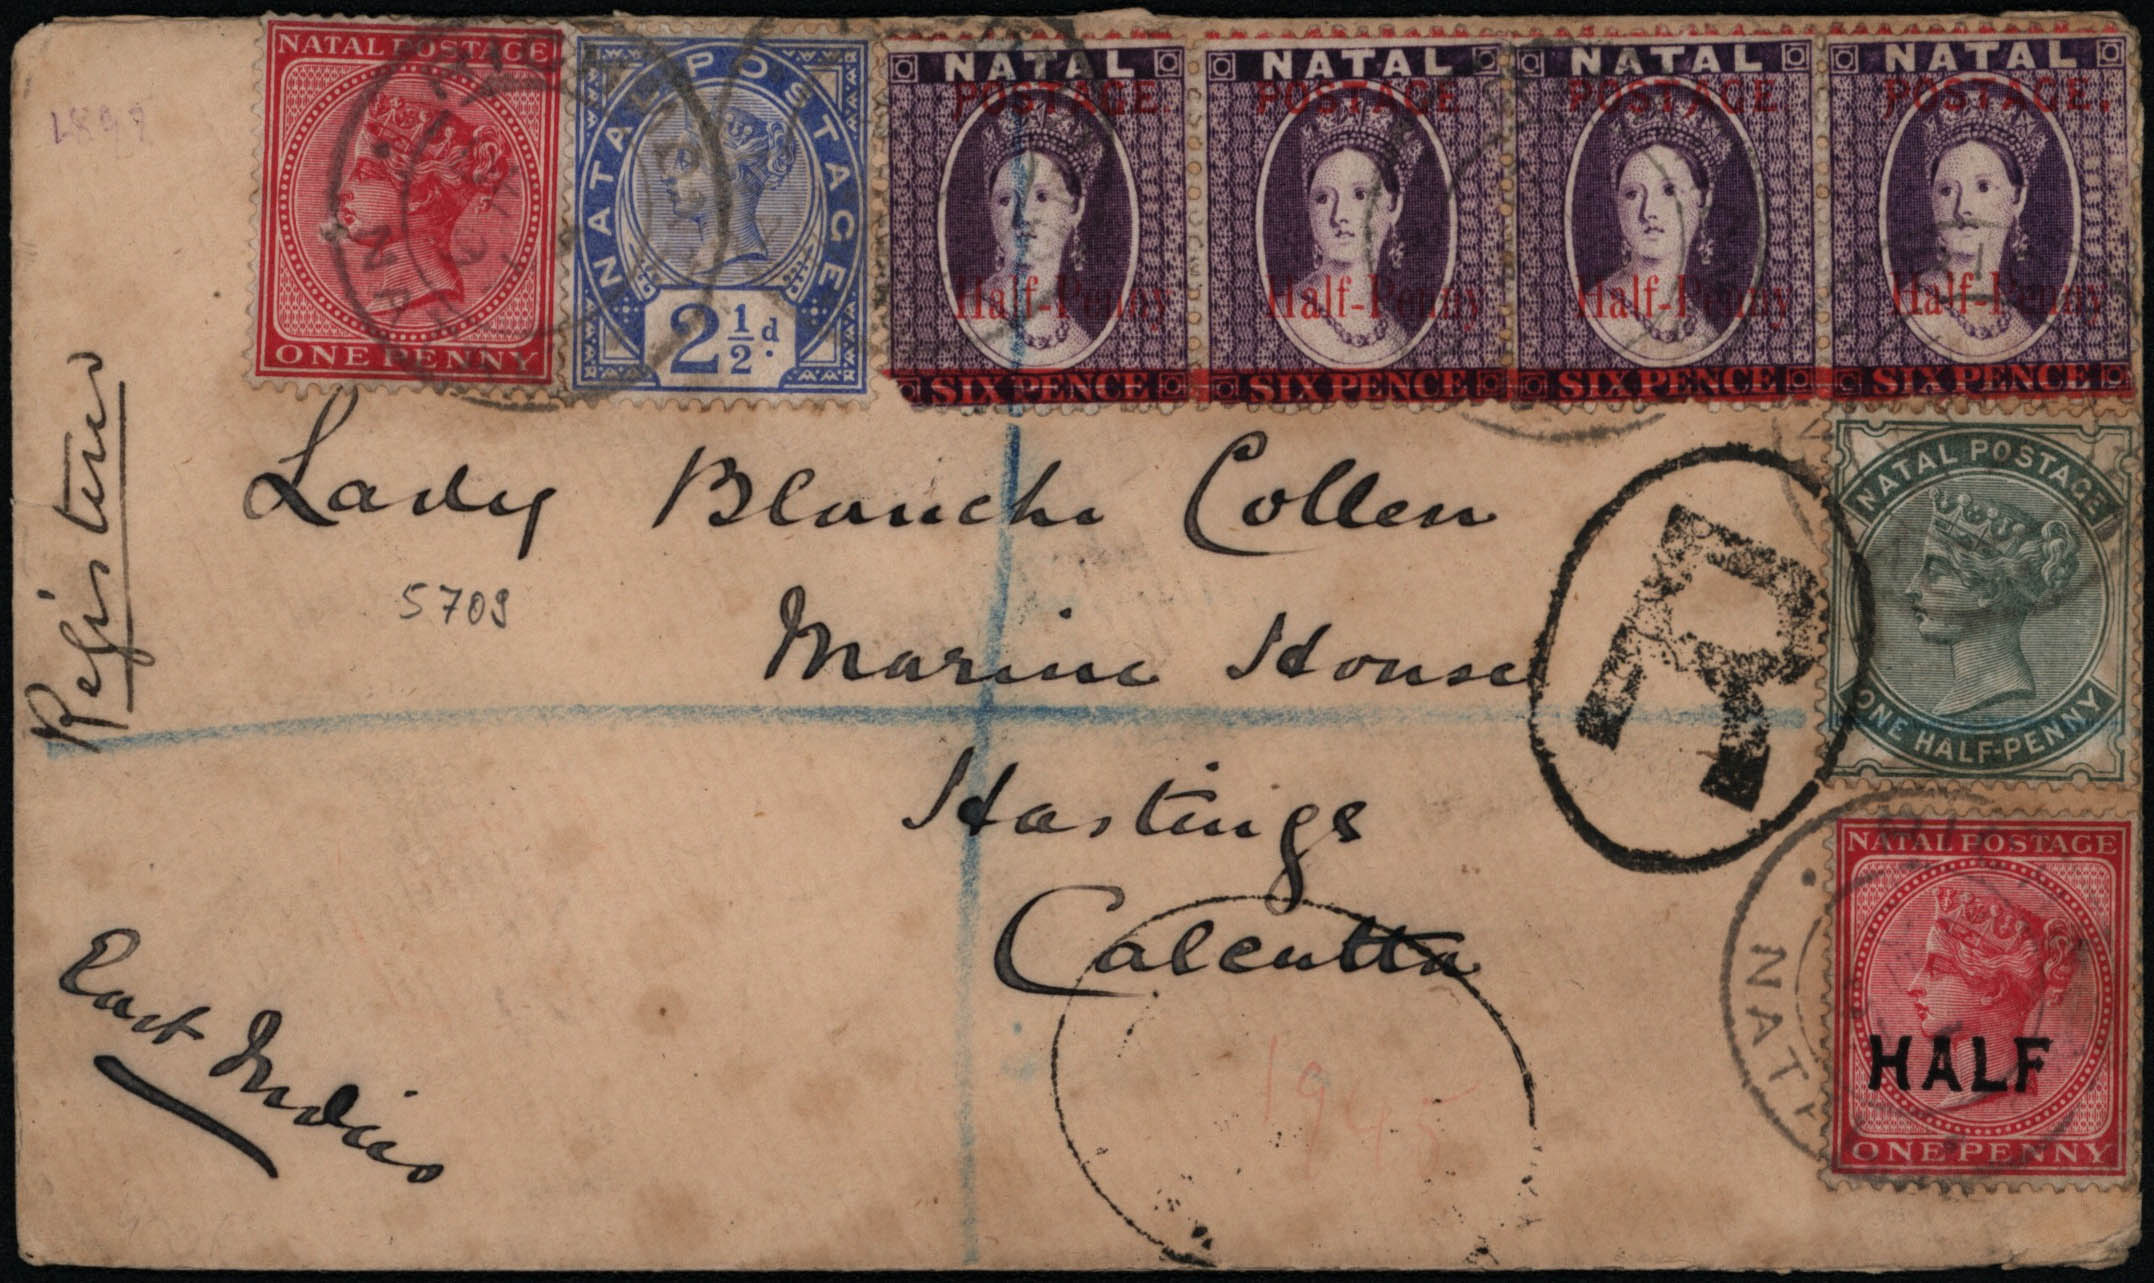 NATAL POSTAGE
ONE PENNY
NATAL POSTAGE
2½d.
NATAL
POSTAGE.
Half-Penny
SIXPENCE
NATAL
POSTAGE
Half-Penny
SIXPENCE
NATAL
POSTAGE
Half-Penny
SIXPENCE
NATAL
POSTAGE.
Half-Penny
SIXPENCE
1899
Register
Lady Blanche Collen
5709
Marine House
Hastings
Calcutta
East Indies
R
NATAL POSTAGE
ONE HALF-PENNY
NATAL POSTAGE
HALF
ONE PENNY
NATAL
1945